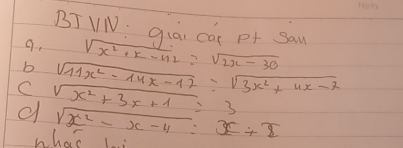 BTVN: giải các pt sau
a. √x² + x - 42 = √2x - 30
b √11x² - 14x - 12 = √3x² + 4x - 7
c √x² + 3x + 1 = 3
d √x² - x - 4 =
nhắc lại